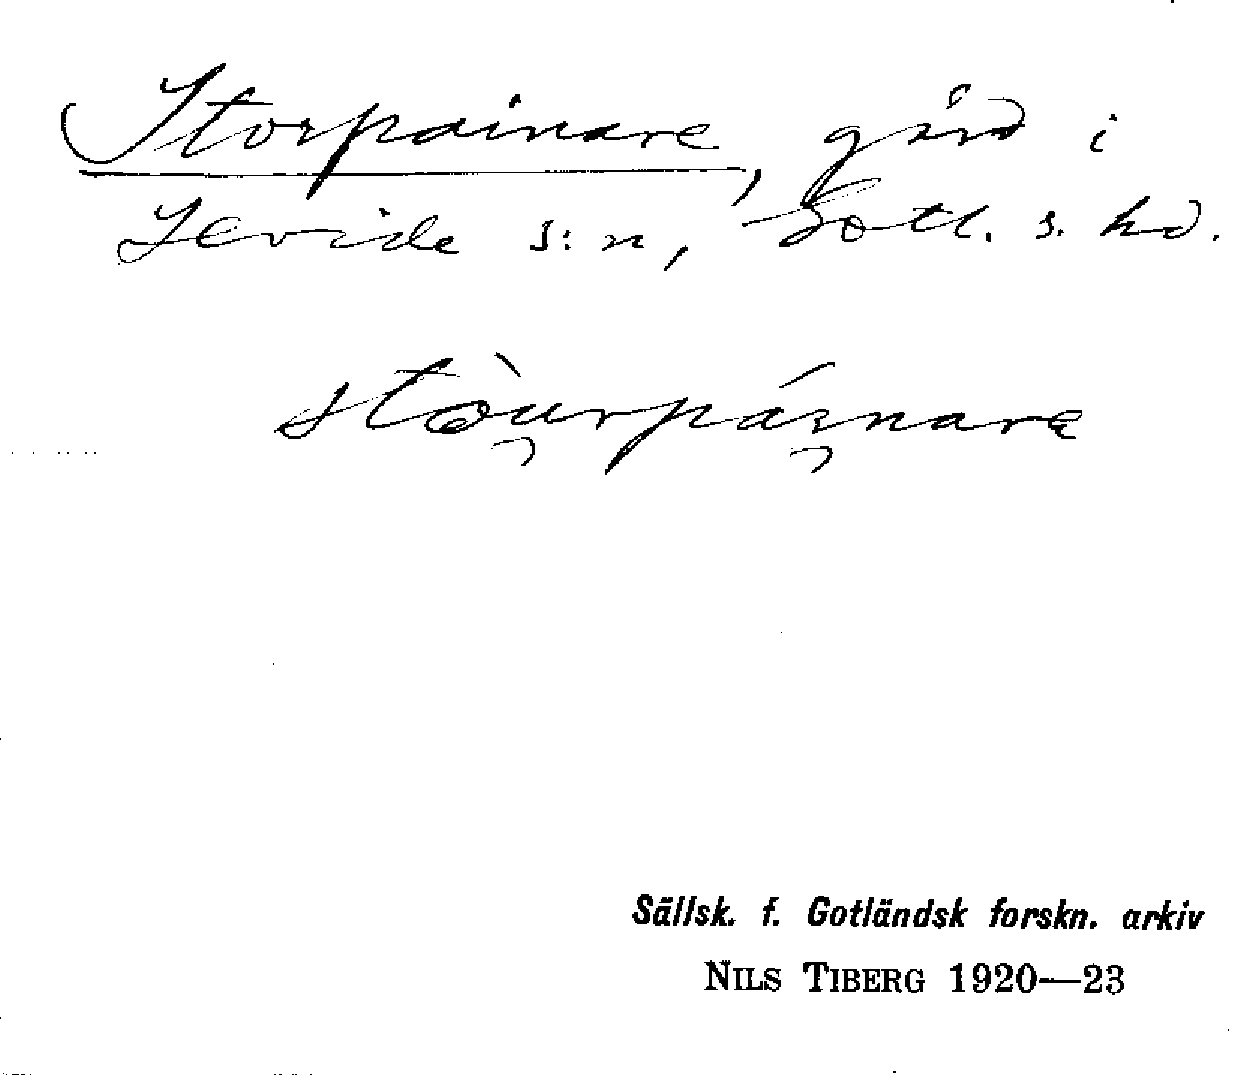 Storpainare, gård i
Levide s:n, Gotl. s. hd.
stòu̯rpái̯nare
Sällsk. f. Gotländsk forskn. arkiv
NILS TIBERG 1920—23